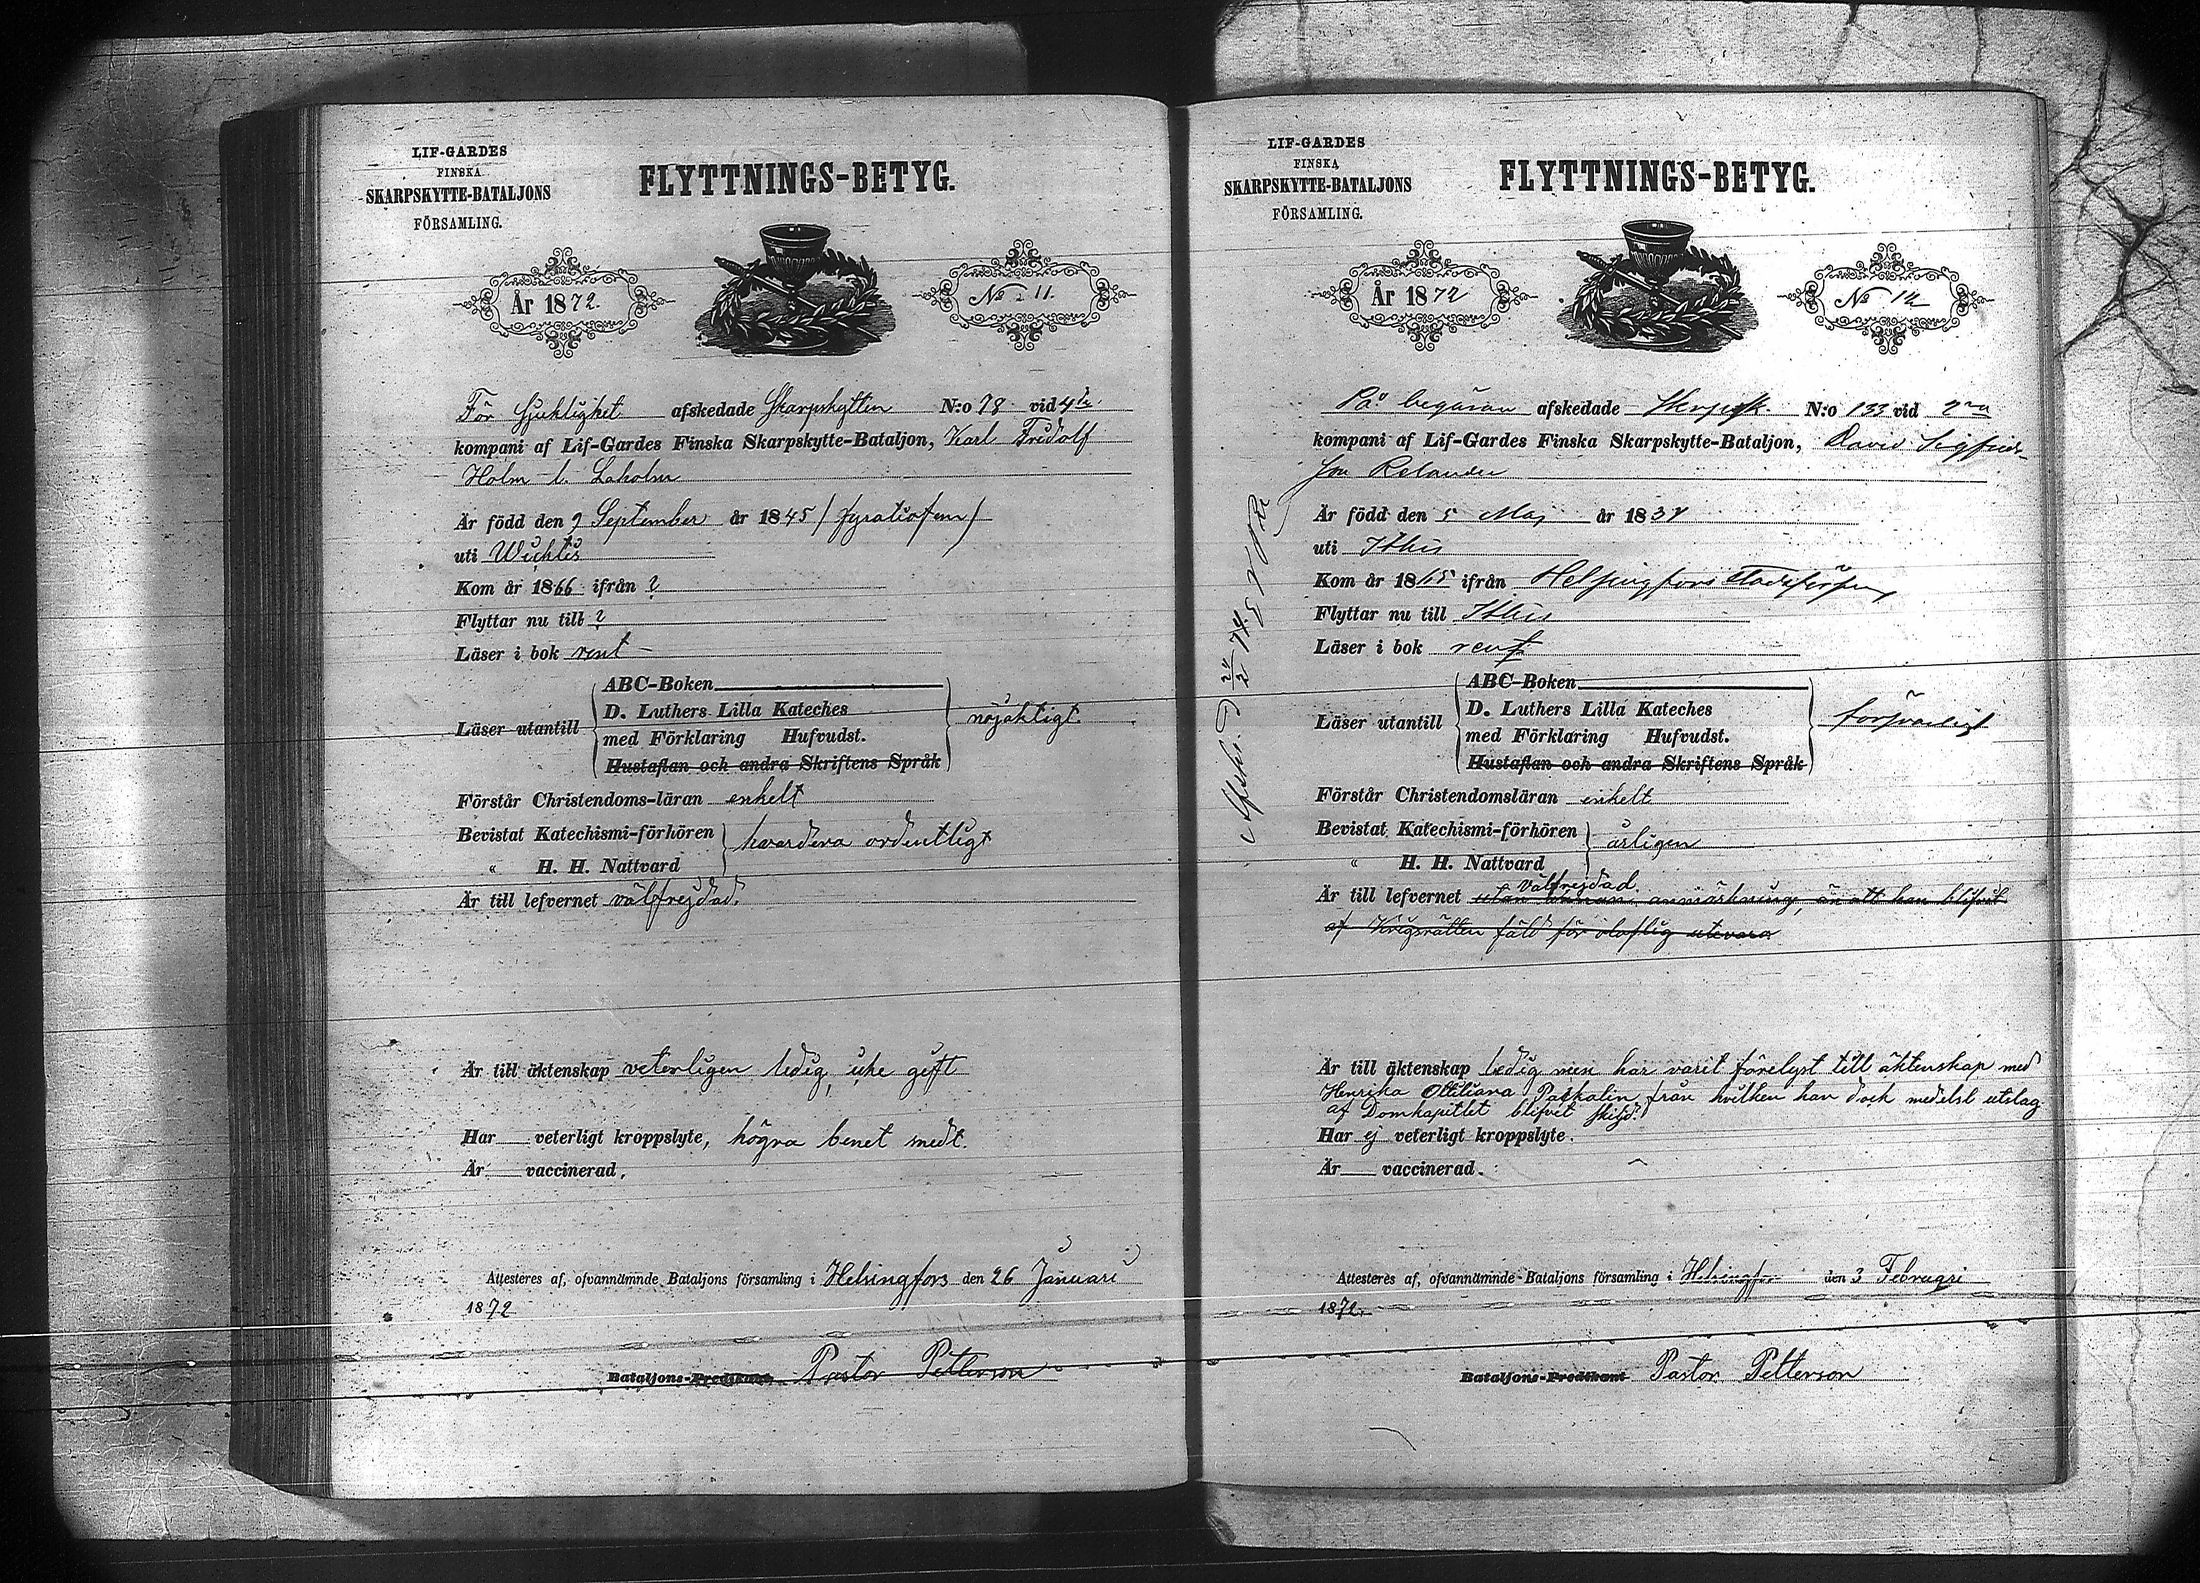 LIF-GARDES
FINSKA
SKARPSKYTTE-BATALJONS
FÖRSAMLING.
FLYTTNINGS-BETYG.
År 1872.
No 11.
För sjuklighet afskedade Skarpskytten N:o 78 vid 4de
kompani af Lif-Gardes Finska Skarpskytte-Bataljon, Karl Fridolf
Holm l. Laholm
Är född den 9 September år 1845 / fyratiofem /
uti Wichtis
Kom år 1866 ifrån ?
Flyttar nu till ?
Läser i bok rent –
Läser utantill
ABC-Boken
D. Luthers Lilla Kateches
med Förklaring Hufvudst.
Hustaflan och andra Skriftens Språk
nöjaktigt.
Förstår Christendoms-läran enkelt
Bevistat Katechismi-förhören
" H. H. Nattvard
hvardera ordentligt
Är till lefvernet välfrejdad.
Är till äktenskap veterligen ledig, icke gift
Har veterligt kroppslyte, högra benet
Är vaccinerad,
Attesteres af, ofvannämnde Bataljons församling i Helsingfors den 26 Januari
1872
Bataljons-Predikant Pastor Petterson
LIF-GARDES
FINSKA
SKARPSKYTTE-BATALJONS
FÖRSAMLING.
FLYTTNINGS-BETYG.
År 1872
No 12
På begäran afskedade Skrpsk. N:o 133 vid 2ra
kompani af Lif-Gardes Finska Skarpskytte-Bataljon, David Sigfrids-
son Relander
Är född den 5 Maj år 183
uti Ithis
Kom år 1865 ifrån Helsingfors stadsförs
Flyttar nu till Ithis
Läser i bok rent
Läser utantill
ABC-Boken
D. Luthers Lilla Kateches
med Förklaring Hufvudst.
Hustaflan och andra Skriftens Språk
försvarligt
Förstår Christendomsläran enkelt
Bevistat Katechismi-förhören
" H. H. Nattvard
årligen
välfrejdad.
Är till lefvernet utan annan anmärkning, än att han blifvit
af Krigsrätten fäld för olaflig utevaro
Är till äktenskap ledig men har varit förelyst till äktenskap med
Henrika Ottiliana Paskalin, från hvilken han dock medelst utslag
af Domkapitlet blifvit skild.
Har ej veterligt kroppslyte.
Är vaccinerad.
Attesteres af, ofvannämnde Bataljons församling i Helsingfors den 3 Februari
1872.
Bataljons-Predikant Pastor Petterson